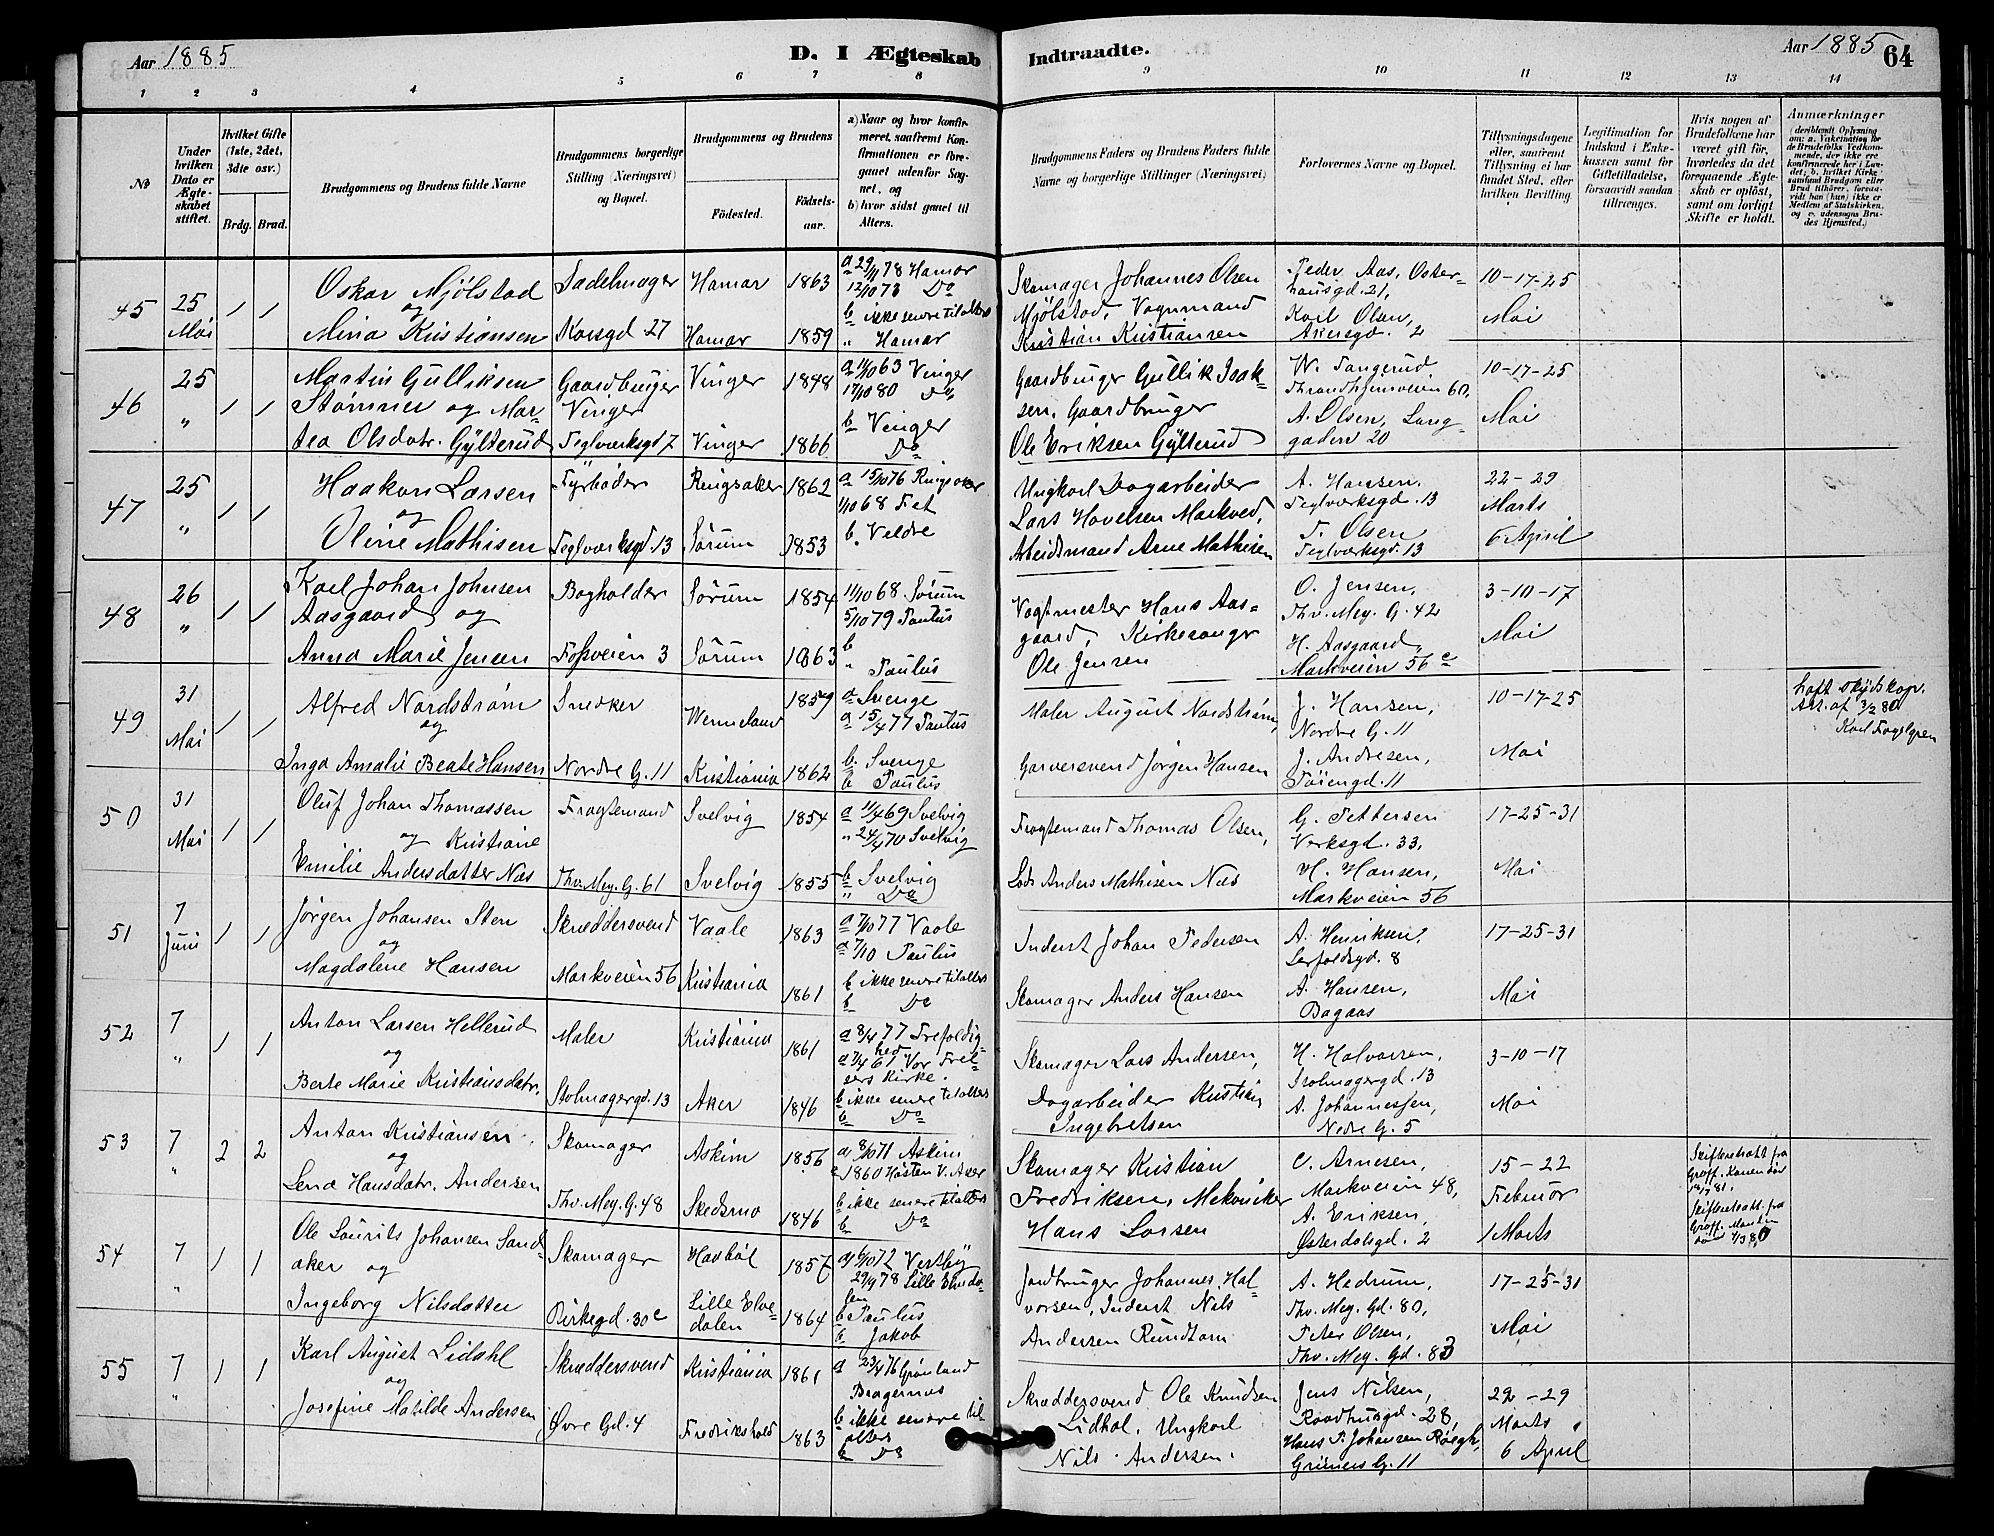 Aar 1885
D. I Ægteskab
Indtraadte.
Aar 1885
64
1 2 3 4 5 6 7 8 9 10 11 12 13 14
№
Under hvilken Dato er Ægteskabet stiftet.
Hvilket Gifte (1ste, 2det, 3dte osv.)
Brdg. Brud.
Brudgommens og Brudens fulde Navne
Brudgommens borgerlige Stilling (Næringsvei) og Bopæl.
Brudgommens og Brudens
Fødested.
Fødsels-aar.
a) Naar og hvor konfirmeret, saafremt Konfirmationen er foregaaet udenfor Sognet, og
b) hvor sidst gaaet til Alters.
Brudgommens Faders og Brudens Faders fulde Navne og borgerlige Stillinger (Næringsvei)
Forlovernes Navne og Bopæl.
Tillysningsdagene eller, saafremt Tillysning ei har fundet Sted, efter hvilken Bevilling.
Legitimation for Indskud i Enkekassen samt for Giftetilladelse, forsaavidt saadan tiltrænges.
Hvis nogen af Brudefolkene har været gift før, hvorledes da det foregaaende Ægteskab er opløst, samt om lovligt Skifte er holdt.
Anmærkninger
45 25 Mai 1 1
Oskar Mjølstad og
Mina Kristiansen
Sadelmager
Korsgd 27
Hamar 1863
Hamar 1859
a 29/11 78 Hamar
12/10 73 Do
b ikke senere tilalters
" Hamar
Skomager Johannes Olsen
Mjølstad, Vognmand
Kristian Kristiansen
Peder Aas, Osterhausgd. 21,
Karl Olsen,
Akersgd. 2
10-17-25
Mai
46 25 " 1 1
Martin Gulliksen
Stømner og Martea Olsdatr. Gylterud
Gaardbruger
Vinger
Teglværksgd 7
Vinger 1848
Vinger 1866
a 11/10 63 Vinger
17/10 80 Do
b Vinger
Do
Gaardbruger Gullik Isaksen, Gaardbruger
Ole Eriksen Gylterud
W. Tangerud
Thrandhjemsveien 60,
A. Olsen, Langgaden 20
10-17-25
Mai
47 25 " 1 1
Haakon Larsen
og
Oline Mathisen
Fyrbøder
Teglværksgd. 13
Ringsaker 1862
Sørum 1853
a 15/10 76 Ringsaker
1/10 68 Fet
b. Veldre
Ungkarl Dagarbeider
Lars Hovelsen Markved,
Arbeidsmand Arne Mathisen
A. Hansen,
Teglværksgd. 13
T. Olsen
Teglværksgd. 13
22-29
Marts
6 April
48 26 " 1 1
Karl Johan Johnsen
Aasgaard og
Anna Marie Jensen
Bogholder
Fossveien 3
Sørum 1854
Sørum 1863
11/10 68 Sørum
5/10 79 Paulus
b
" Paulus
Vagtmester Hans Aasgaard, Kirkesanger
Ole Jensen
O. Jensen,
Thv. Mey. G. 42
H. Aasgaard,
Markveien 56 c
3-10-17
Mai
49 31 Mai 1 1
Alfred Nordstrøm
og
Inga Amalie Beate Hansen
Snedker
Nordre G. 11
Wermeland 1859
Kristiania 1862
a Sverige
a 15/4 77 Paulus
b. Sverige
b Paulus
Maler August Nordstrøm,
Garversvend Jørgen Hansen
J. Hansen,
Nordre G. 11
J. Andresen,
Tøiengd. 11
10-17-25
Mai
50 31 Mai 1 1
Oluf Johan Thomassen
og Kristiane
Emilie Andersdatter Næs
Fragtemand
Thv. Mey. G. 61
Svelvig 1854
Svelvig 1855
a 11/4 69 Svelvig
" 24/4 70 Svelvig
b Svelvig
" Do
Fragtemand Thomas Olsen,
Lods Anders Mathisen Næs
G. Pettersen
Verksgd. 33,
H. Hansen,
Markveien 56
17-25-31
Mai
51 7 Juni 1 1
Jørgen Johansen Sten
og
Magdalene Hansen
Skræddersvend
Markveien 56
Vaale 1863
Kristiania 1861
a 7/10 77 Vaale
a 7/10 Paulus
b ikke senere tilalters
b Do
Inderst Johan Pedersen
Skomager Anders Hansen
A. Henriksen,
8
A. Hansen,
Bagaas
17-25-31
Mai
52 7 " 1 1
Anton Larsen Hellerud
og
Berte Marie Kristiansdatr.
Maler
Stolmagergd. 13
Kristiania 1861
Aker 1846
a 8/4 77 Trefoldighed
a 7/4 61 Vor Frelsers Kirke.
b ikke senere tilalters
b Do
Skomager Lars Andersen,
Dagarbeider Kristian
Ingebretsen
H. Halvorsen,
Stolmagergd. 13
A. Johannessen,
Nedre G. 5
3-10-17
Mai
53 7 " 2 2
Anton Kristiansen
og
Lena Hansdatr. Andersen
Skomager
Thv. Mey. G. 48
Askim 1856
Skedsmo 1846
a 8/10 71 Askim
a 1860 Høsten V. Aker
b ikke senere tilalters
b Do
Skomager Kristian
Fredriksen, Mekaniker
Hans Larsen
C. Arnesen,
Markveien 48,
A. Eriksen,
Østerdalsgd. 2
15-22
Februar
1 Marts
54 7 " 1 1
Ole Lourits Johansen Sandaker og
Ingeborg Nilsdatter
Skomager
Birkegd. 30 c
Havbøl 1857
Lille Elvedalen 1864
a 6/10 72 Vestby
29/9 78 Lille Elvedalen
b Paulus
b Jakob
Jordbruger Johannes Halvorsen, Inderst Nils
Andersen Rundtom
A. Hedrum,
Thv. Mey. Gd. 80,
Peter Olsen,
Thv. Mey. Gd. 83
17-25-31
Mai
55 7 " 1 1
Karl August Lidahl
og
Josefine Matilde Andersen
Skræddersvend
Øvre Gd. 4
Kristiania 1861
Fredrikshald 1863
a 23/4 76 Grønland
Bragernæs
b ikke senere til alters
b Do
Skræddersvend Ole Knudsen
Lidhal, Ungkarl
Nils Andersen.
Jens Nilsen,
Raadhusgd. 28,
Hans P. Johansen
Grüners G. 11
22-29
Marts
6 April